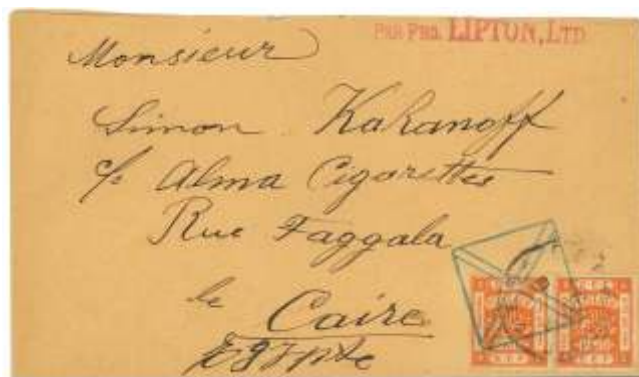 PAR PRO. LIPTON, LTD
Monsieur
Simon Kahanoff
c/o Alma Cigarettes
Rue Faggala
le Caire
Egypte
E.E.F.
E.E.F.